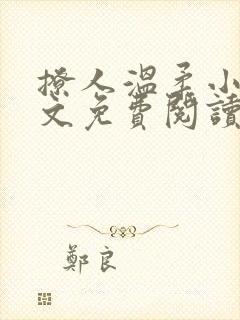 撩人溫柔小
文免費閱讀
鄭良